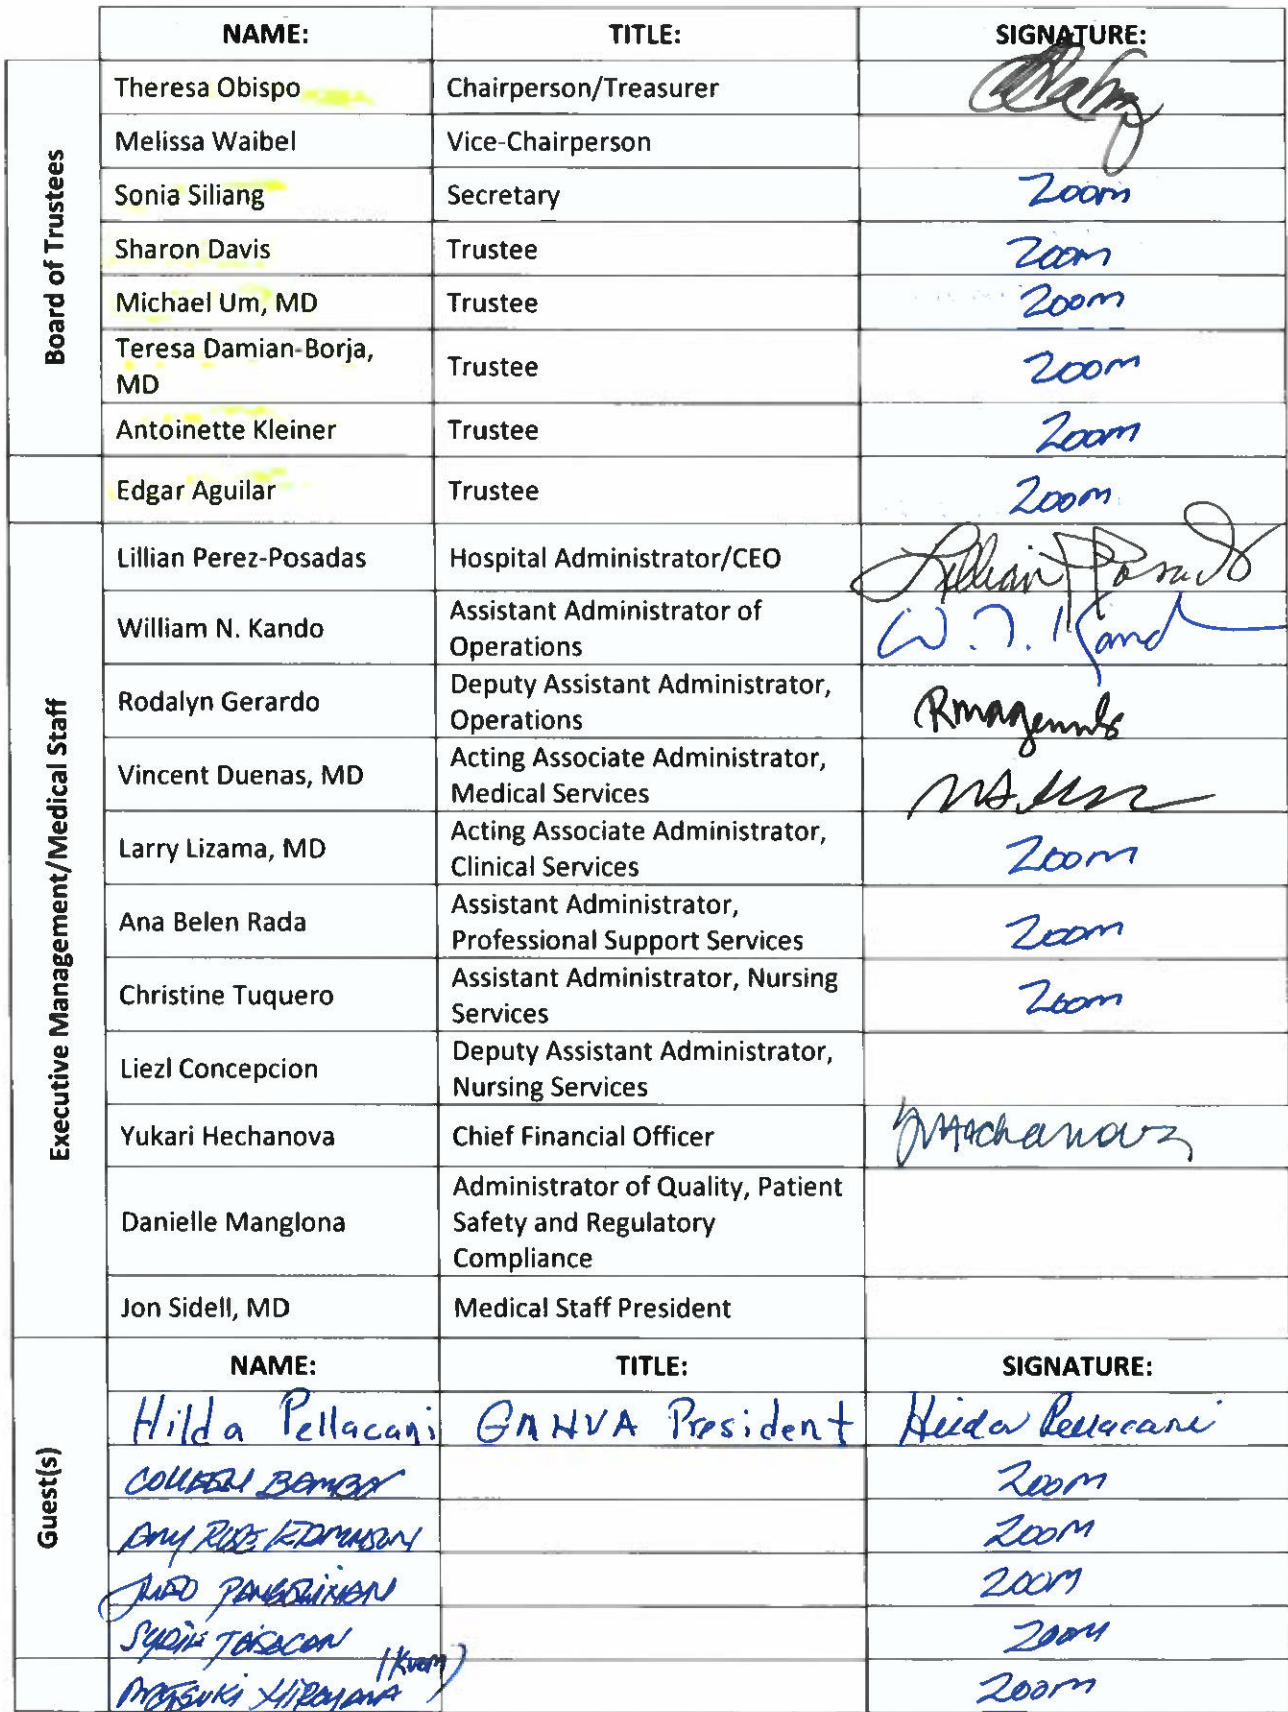 NAME: TITLE: SIGNATURE:
Board of Trustees
Theresa Obispo Chairperson/Treasurer
Melissa Waibel Vice-Chairperson
Sonia Siliang Secretary Zoom
Sharon Davis Trustee Zoom
Michael Um, MD Trustee Zoom
Teresa Damian-Borja,
MD Trustee Zoom
Antoinette Kleiner Trustee Zoom
Edgar Aguilar Trustee Zoom
Executive Management/Medical Staff
Lillian Perez-Posadas Hospital Administrator/CEO Lillian Posadas
William N. Kando Assistant Administrator of
Operations W. N. Kand
Rodalyn Gerardo Deputy Assistant Administrator,
Operations
Vincent Duenas, MD Acting Associate Administrator,
Medical Services
Larry Lizama, MD Acting Associate Administrator,
Clinical Services Zoom
Ana Belen Rada Assistant Administrator,
Professional Support Services Zoom
Christine Tuquero Assistant Administrator, Nursing
Services Zoom
Liezl Concepcion Deputy Assistant Administrator,
Nursing Services
Yukari Hechanova Chief Financial Officer
Danielle Manglona Administrator of Quality, Patient
Safety and Regulatory
Compliance
Jon Sidell, MD Medical Staff President
Guest(s)
NAME: TITLE: SIGNATURE:
Hilda Pellacani GMHVA President Hilda Pellacani
COLLEEN BAMBA Zoom
AMY ROSE Zoom
PANGELINAN Zoom
TAISACAN Zoom
(KUAM)
Zoom